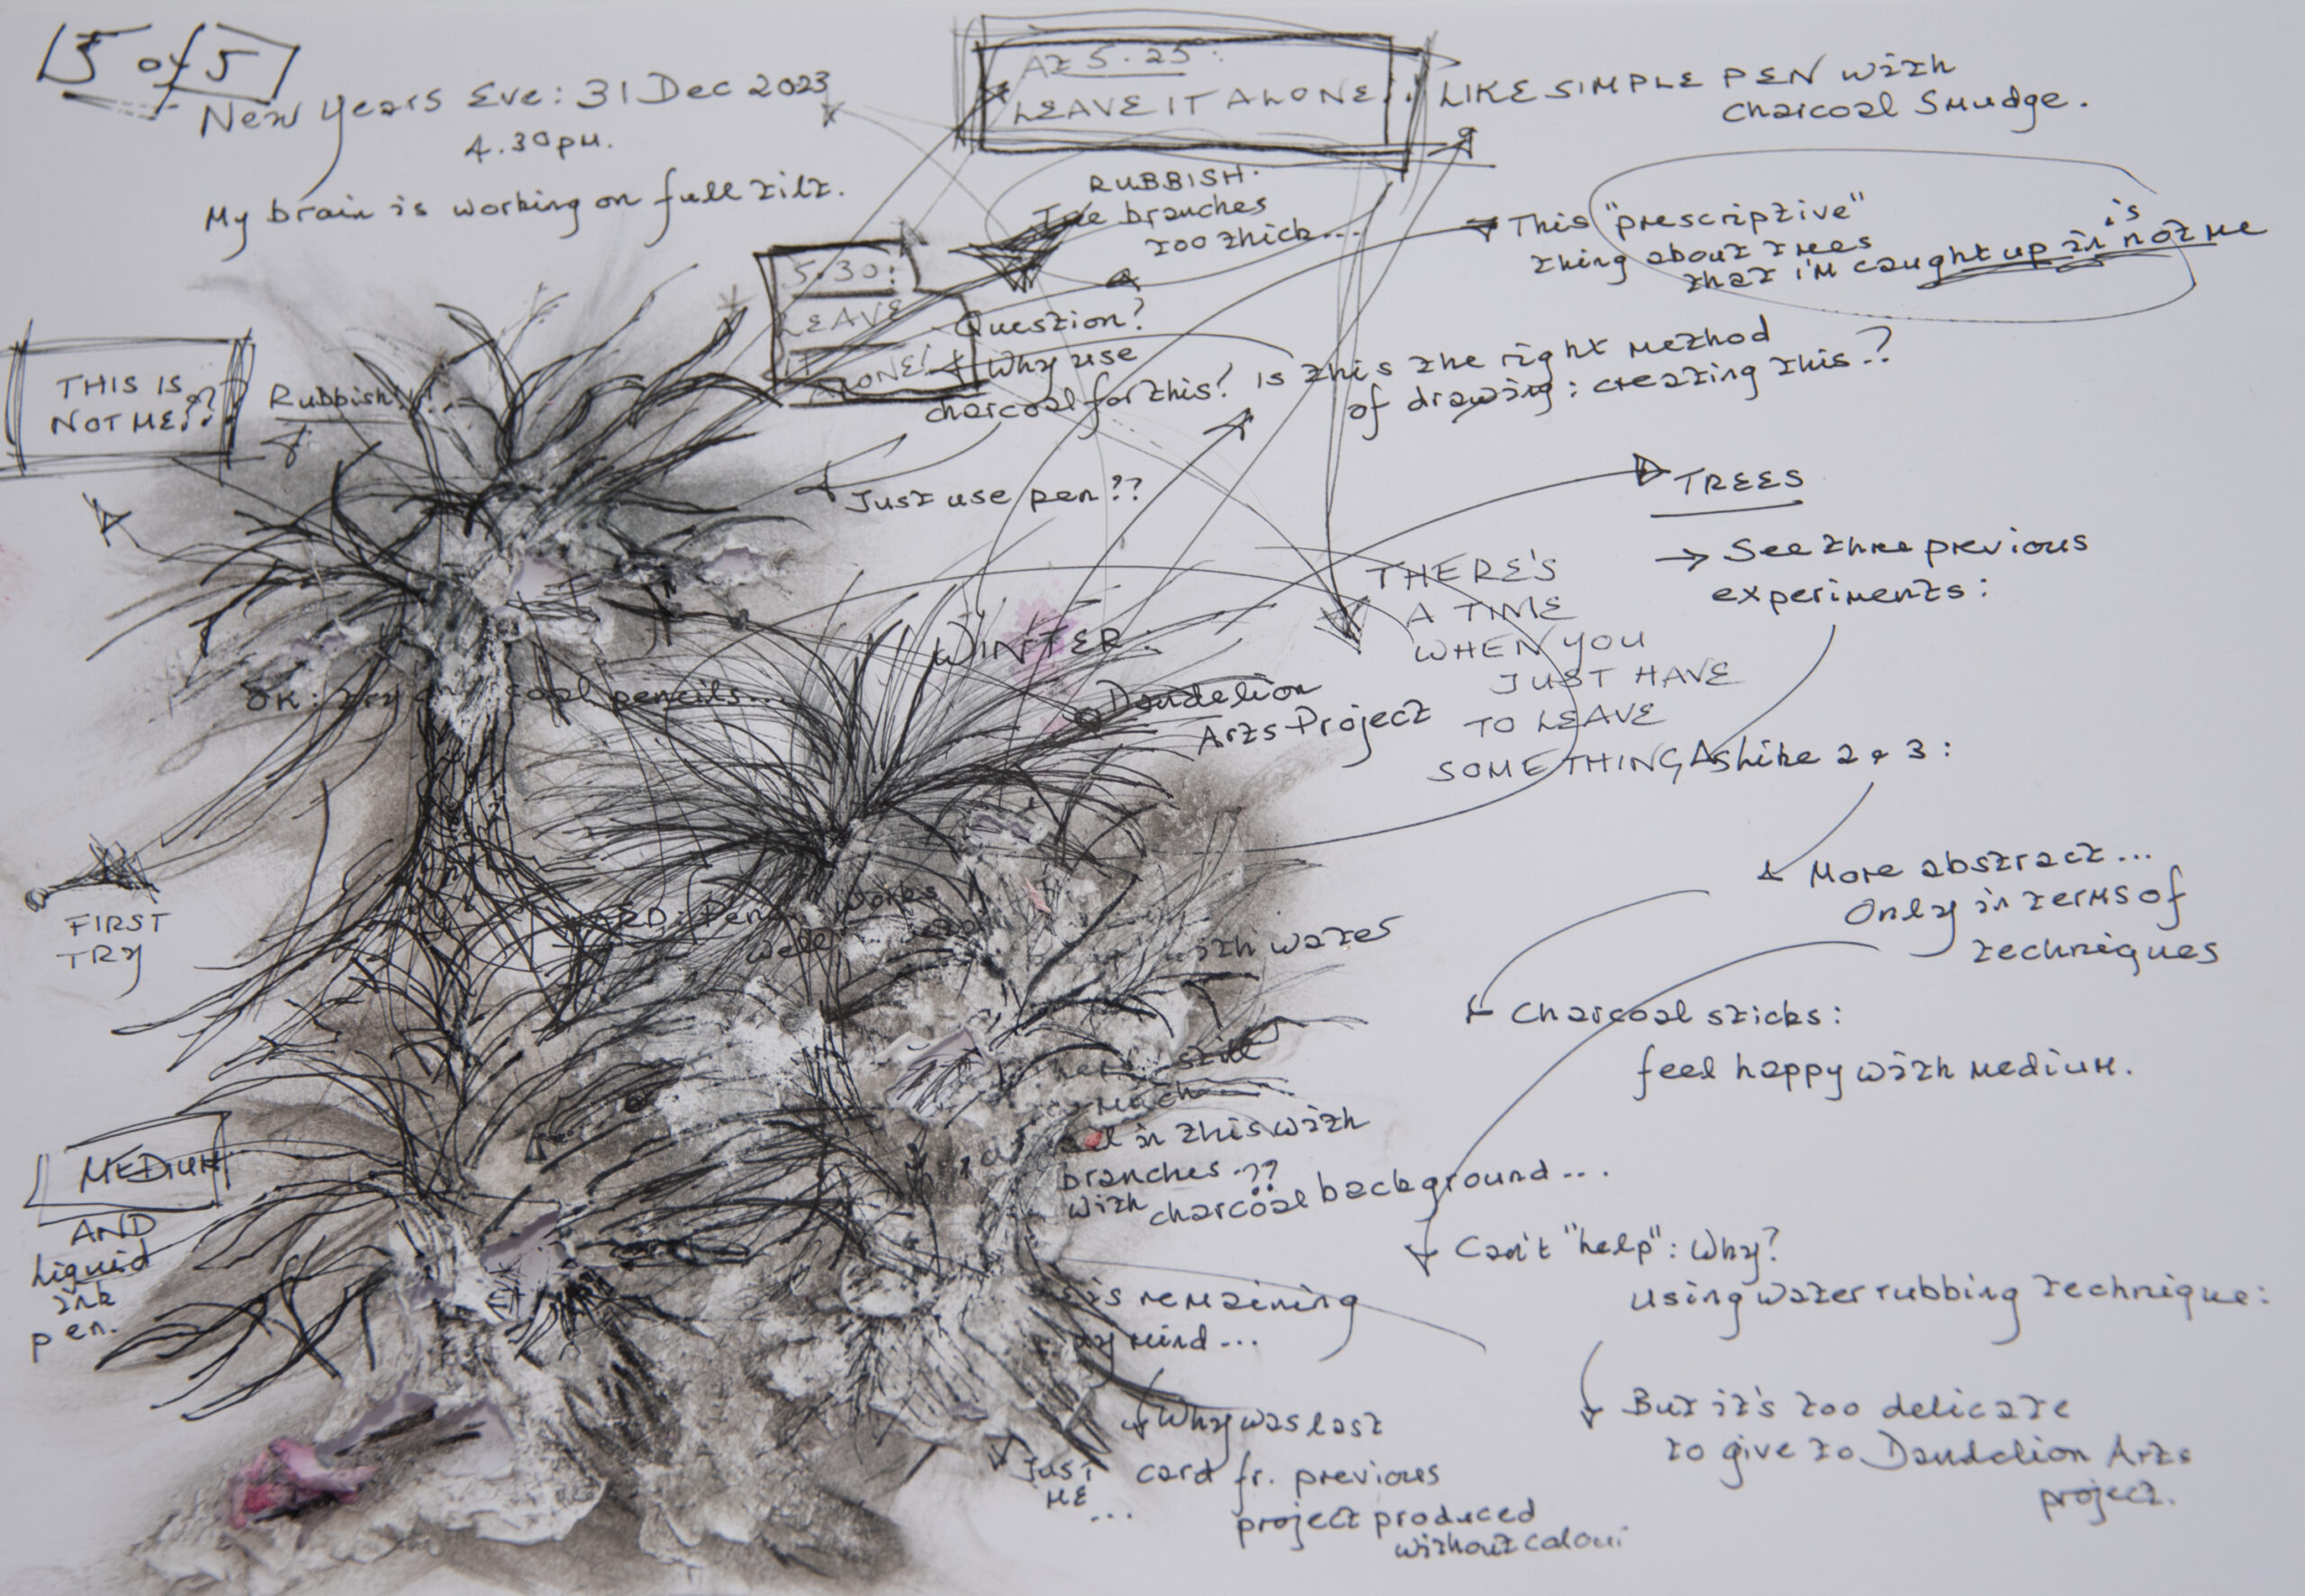 5 of 5
New Years Eve: 31 Dec 2023
4.30pm.
My brain is working on full tilt.
At 5.25:
LEAVE IT ALONE!
LIKE SIMPLE PEN with
charcoal smudge.
RUBBISH.
The branches
too thick...
This "prescriptive"
thing about trees is
that i'm caught up in not me
5.30:
LEAVE
IT
ALONE!
Question?
Why use
charcoal for this?
is this the right method
of drawing: creating this?
THIS IS
NOT ME??
Rubbish!!
Just use pen??
TREES
See three previous
experiments:
THERE'S
A TIME
WHEN YOU
JUST HAVE
TO LEAVE
SOMETHING
WINTER:
Dandelion
Arts Project
OK: try coal pencils...
As like 2 & 3:
More abstract...
Only in terms of
techniques
FIRST
TRY
Pen works
well
with water
Charcoal sticks:
feel happy with medium.
still
much
in this with
branches ??
with charcoal background...
MEDIUM
AND
liquid
ink
pen.
Can't "help": Why?
using water rubbing technique:
is remaining
my mind...
But it's too delicate
to give to Dandelion Arts
project.
Why was last
card fr. previous
project produced
without colour
Just
me
...